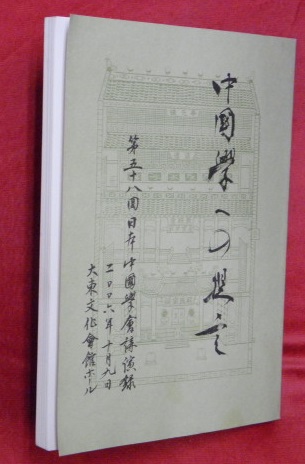 中國學への提言
第五十八回日本中國學會講演録
二〇〇六年十月九日
大東文化會館ホール